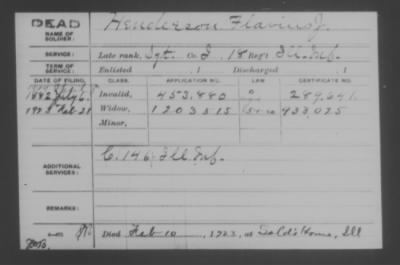 DEAD
NAME OF SOLDIER: Henderson, Flavius J.
SERVICE: Late rank, Sgt. Co. I, 18 Reg't Ill. Inf.
TERM OF SERVICE: Enlisted , 1 Discharged , 1
DATE OF FILING. CLASS. APPLICATION NO. LAW. CERTIFICATE NO.
1882 July 6 Invalid, 453.880 289.641.
1923 Feb 21 Widow, 1203515 933,025
Minor,
ADDITIONAL SERVICES: C. 146 Ill. Inf.
REMARKS:
Died Feb 10, 1923, at Sold's Home, Ill